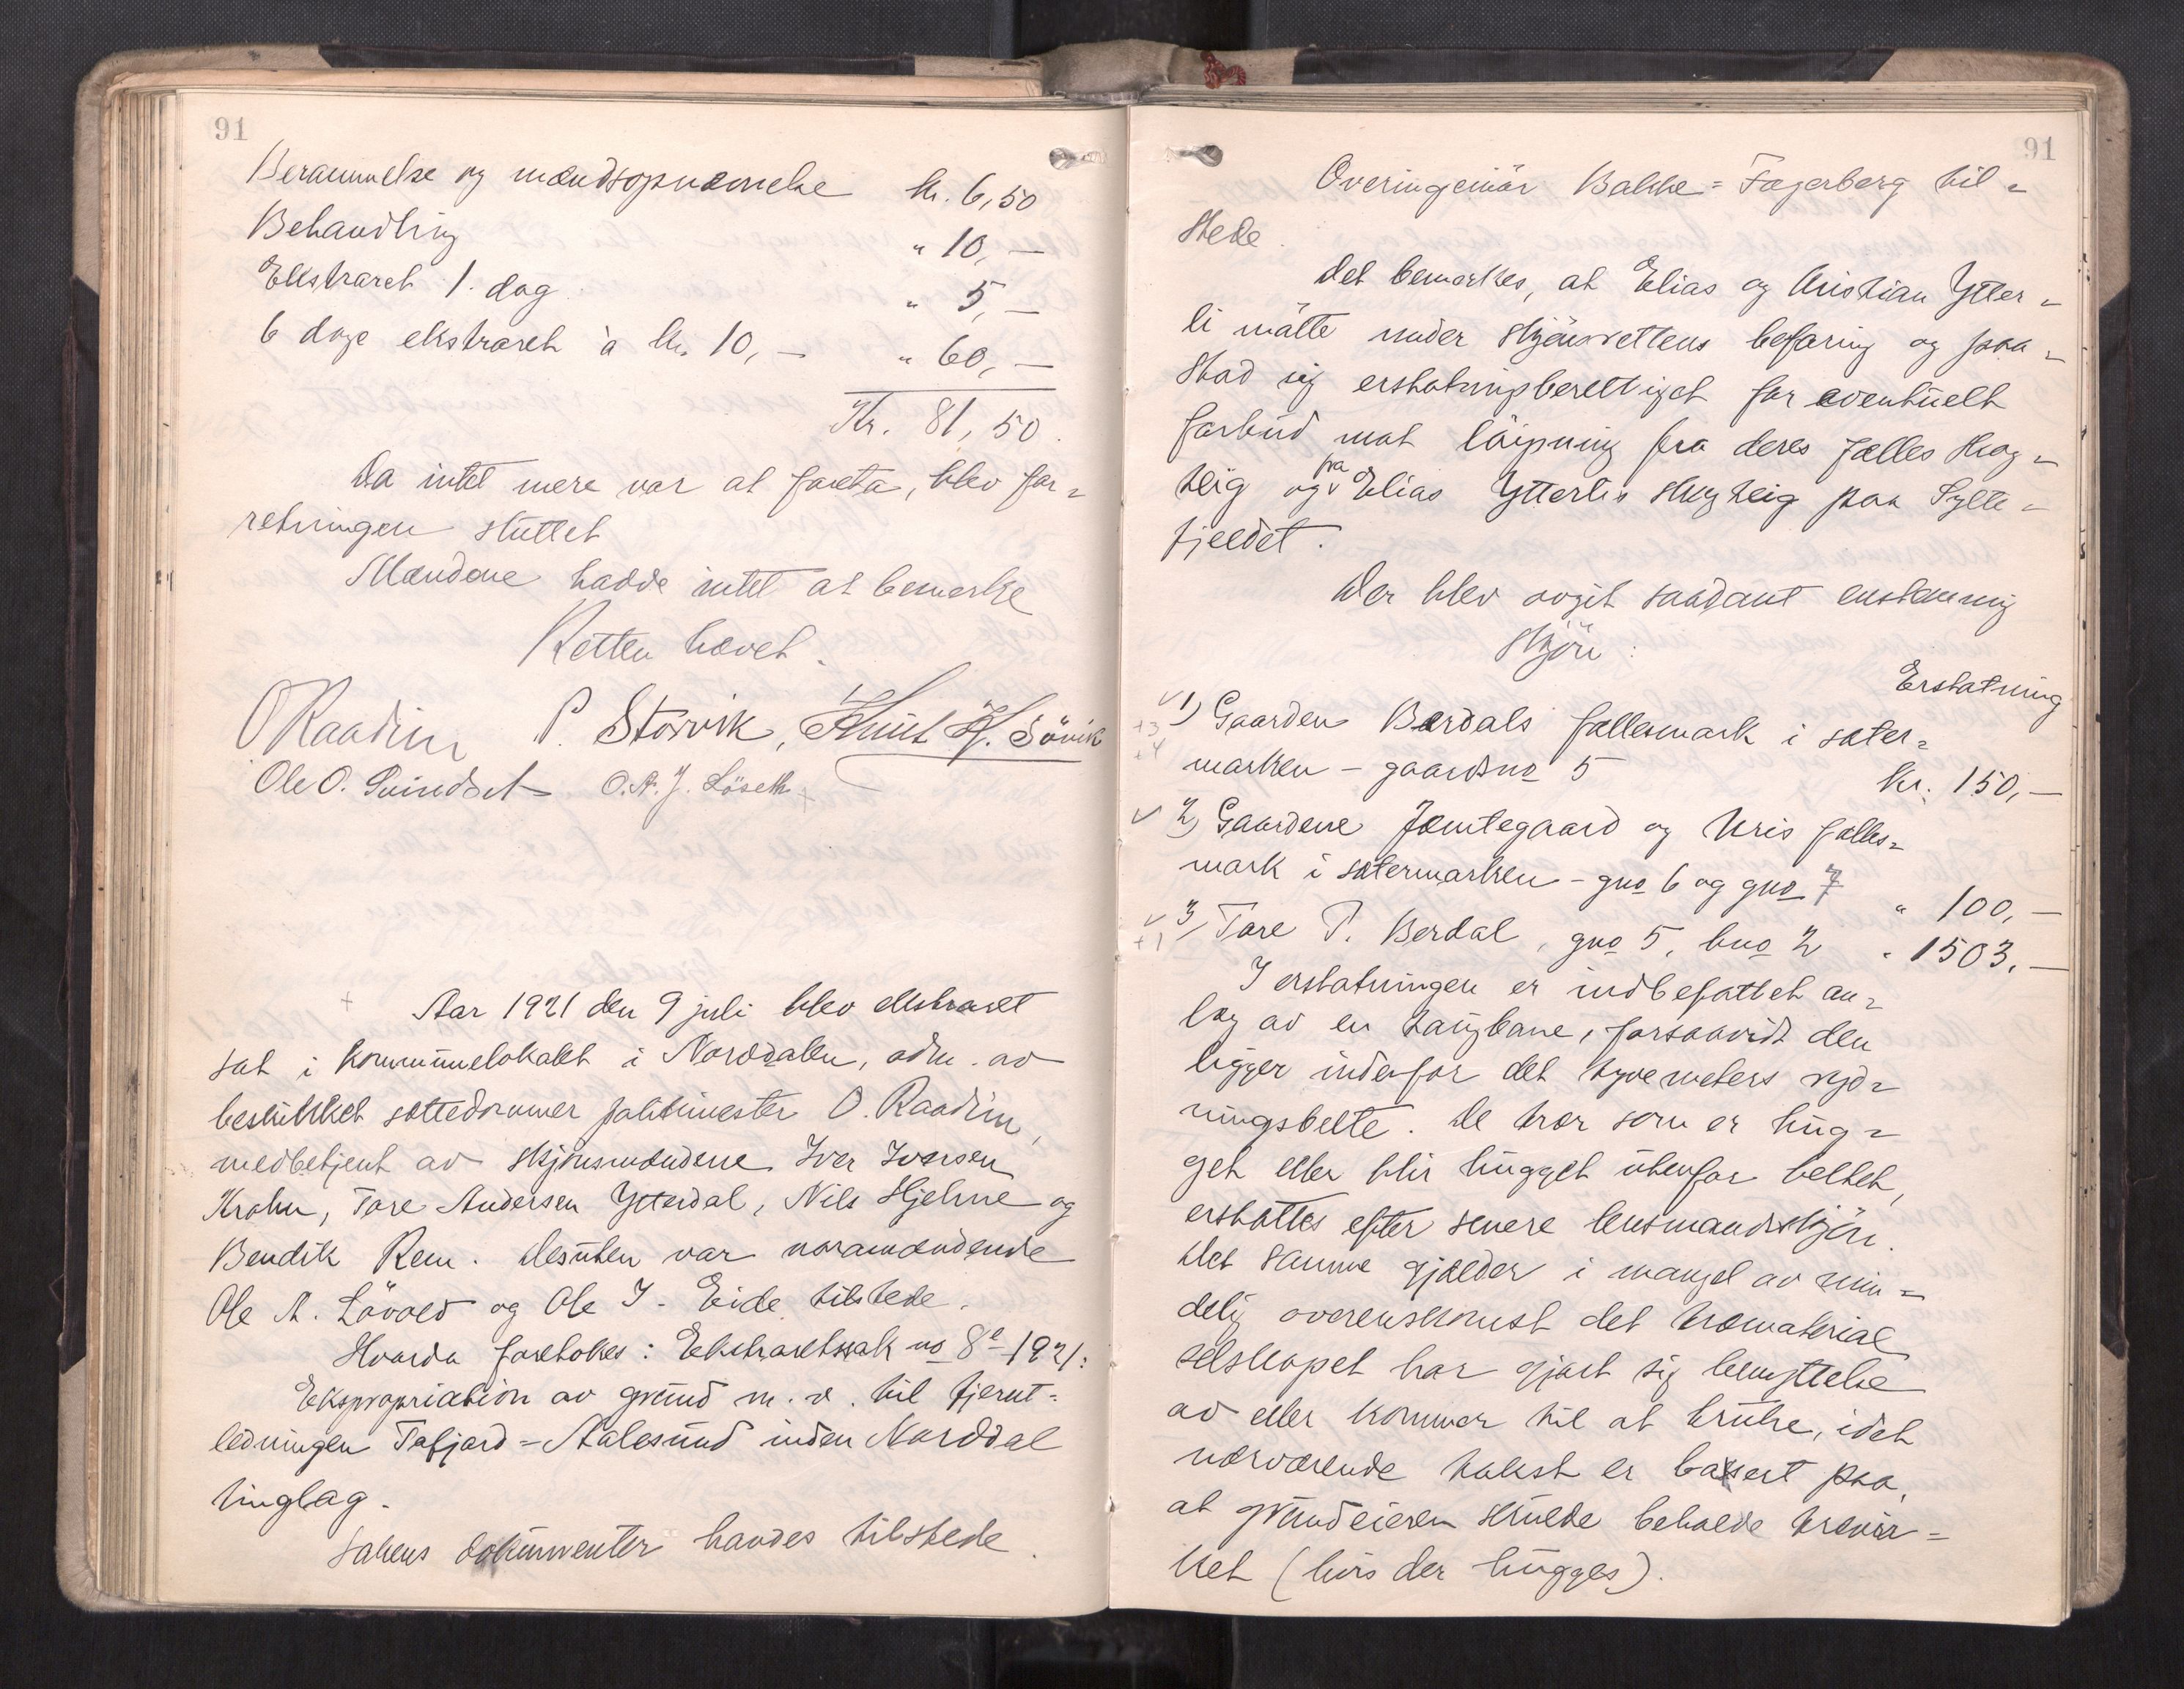 91
Berammelse og mændsopnævnelse kr. 6,50
Behandling " 10,—
Ekstraret 1. dag " 5,—
6 dage ekstraret à kr. 10,— " 60,—
Kr. 81,50.
Da intet mere var at foreta, blev for=
retningen sluttet
Mændene hadde intet at bemerke
Retten hævet.
O Raadim P. Storvik, Knut H. Sövik
Ole O. O. A. J. Löseth
Aar 1921 den 9 juli blev ekstraret
sat i kommunelokalet i Norddalen, adm. av
beskikket sættedommer politimester O. Raadim,
medbetjent av skjönsmændene Iver Iversen
Krohn, Tore Andersen Ytterdal, Nils Hjelme og
Bendik Rem. Desuten var varamændene
Ole A. Lövold og Ole I. Eide tilstede.
Hvorda foretokes: Ekstraretssak no 8e 1921:
Ekspropriation av grund m. v. til fjernt=
ledningen Tafjord=Aalesund inden Norddal
tinglag.
Sakens dokumenter havdes tilstede.
91
Overingeniör Bakke=Fagerberg til=
stede.
Det bemerkes, at Elias og Kristian Ytter=
li mötte under skjönsrettens befaring og paa=
stod sig erstatningsberettiget for eventuelt
forbud mot löipning fra deres fælles skog=
teig og fra Elias Ytterlis skogteig paa Sylte=
fjeldet.
Der blev avgit saadant enstemmig
skjön:
Erstatning
1) Gaarden Berdals fællesmark i sæter=
marken – gaardsno 5 kr. 150,—
2) Gaardene Jemtegaard og Uris fælles=
mark i sætermarken – gno 6 og gno 7 " 100,—
3) Tore P. Berdal, gno 5, bno 2 " 1503,—
I erstatningen er indbefattet an=
læg av en taugbane, forsaavidt den
ligger indenfor det tyvemeters ryd=
ningsbelte. De trær som er hug=
get eller blir hugget utenfor beltet,
erstattes efter senere lensmandsskjön.
Det samme gjælder i mangel av min=
delig overenskomst det træmateriale
selskapet har gjort sig benyttelse
av eller kommer til at bruke, idet
nærværende takst er basert paa,
at grundeieren skulde beholde trevir=
ket (hvis der hugges).